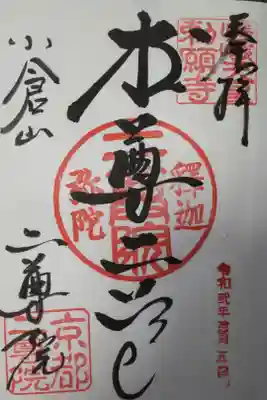 奉拝
勅願寺
令和弐年
本尊二尊
釋迦
弥陀
小倉山
二尊院
京都
二尊院